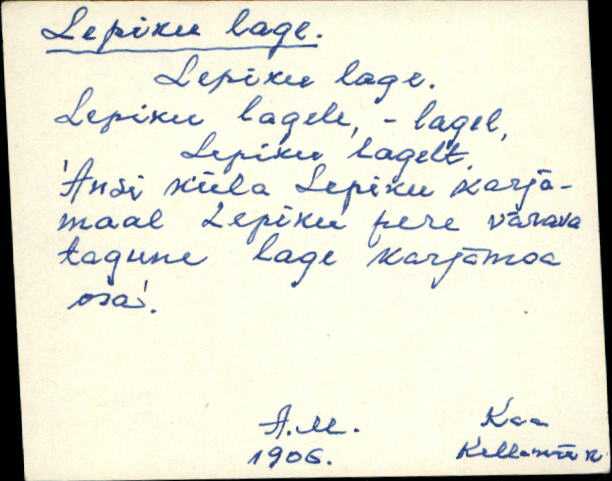 Lepiku lage.
Lepiku lage.
Lepiku lagele, - lagel,
Lepiku lagelt.
'Ansi küla Lepiku karjä-
maal Lepiku pere värava
tagune lage karjämoa
osa'.
A.M. Kaa
1906. Kellamäe